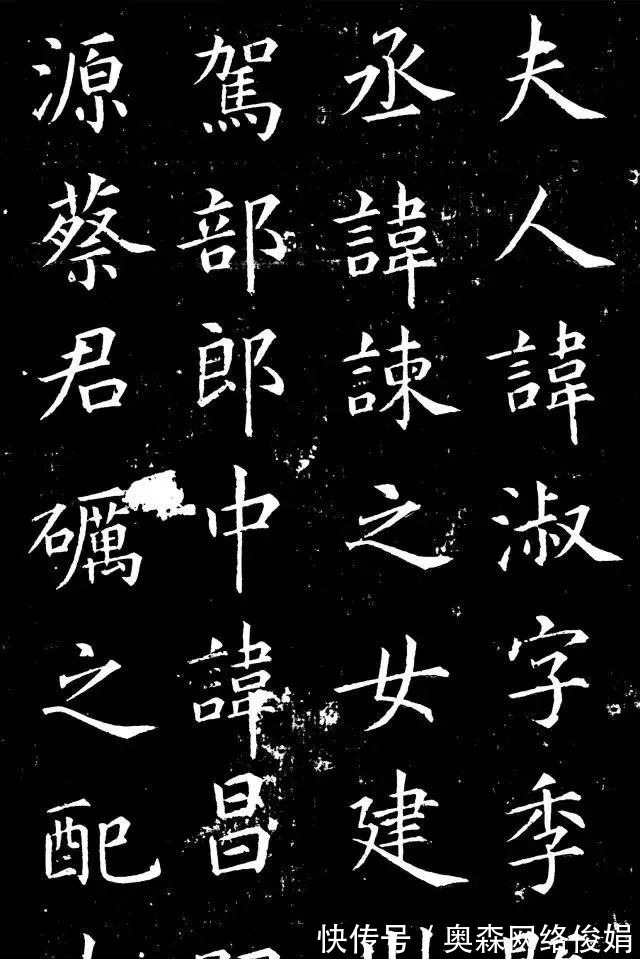 夫人諱淑字季
丞諱諫之女建
駕部郎中諱昌
源蔡君礪之配
快传号/奥森网络俊娟